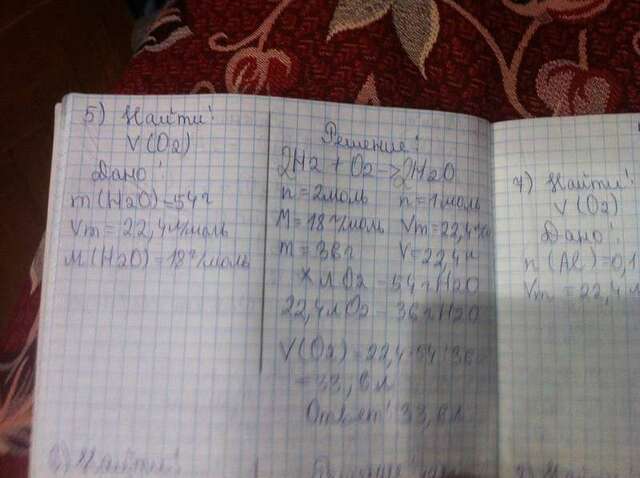 5) Найти!
V(O2)
Дано!
m(H2O)=54г
Vm=22,4л/моль
M(H2O)=18г/моль
Решение!
2H2+O2->2H2O
n=2моль n=1моль
M=18г/моль Vm=22,4
m=36г V=22,4л
XлO2-54гH2O
22,4лO2-36гH2O
V(O2)=22,4·54:36
=33,6л
Ответ! 33,6л
7) Найти!
V(O2)
Дано!
n(Al)=0,1
Vm=22,4л
Найти!